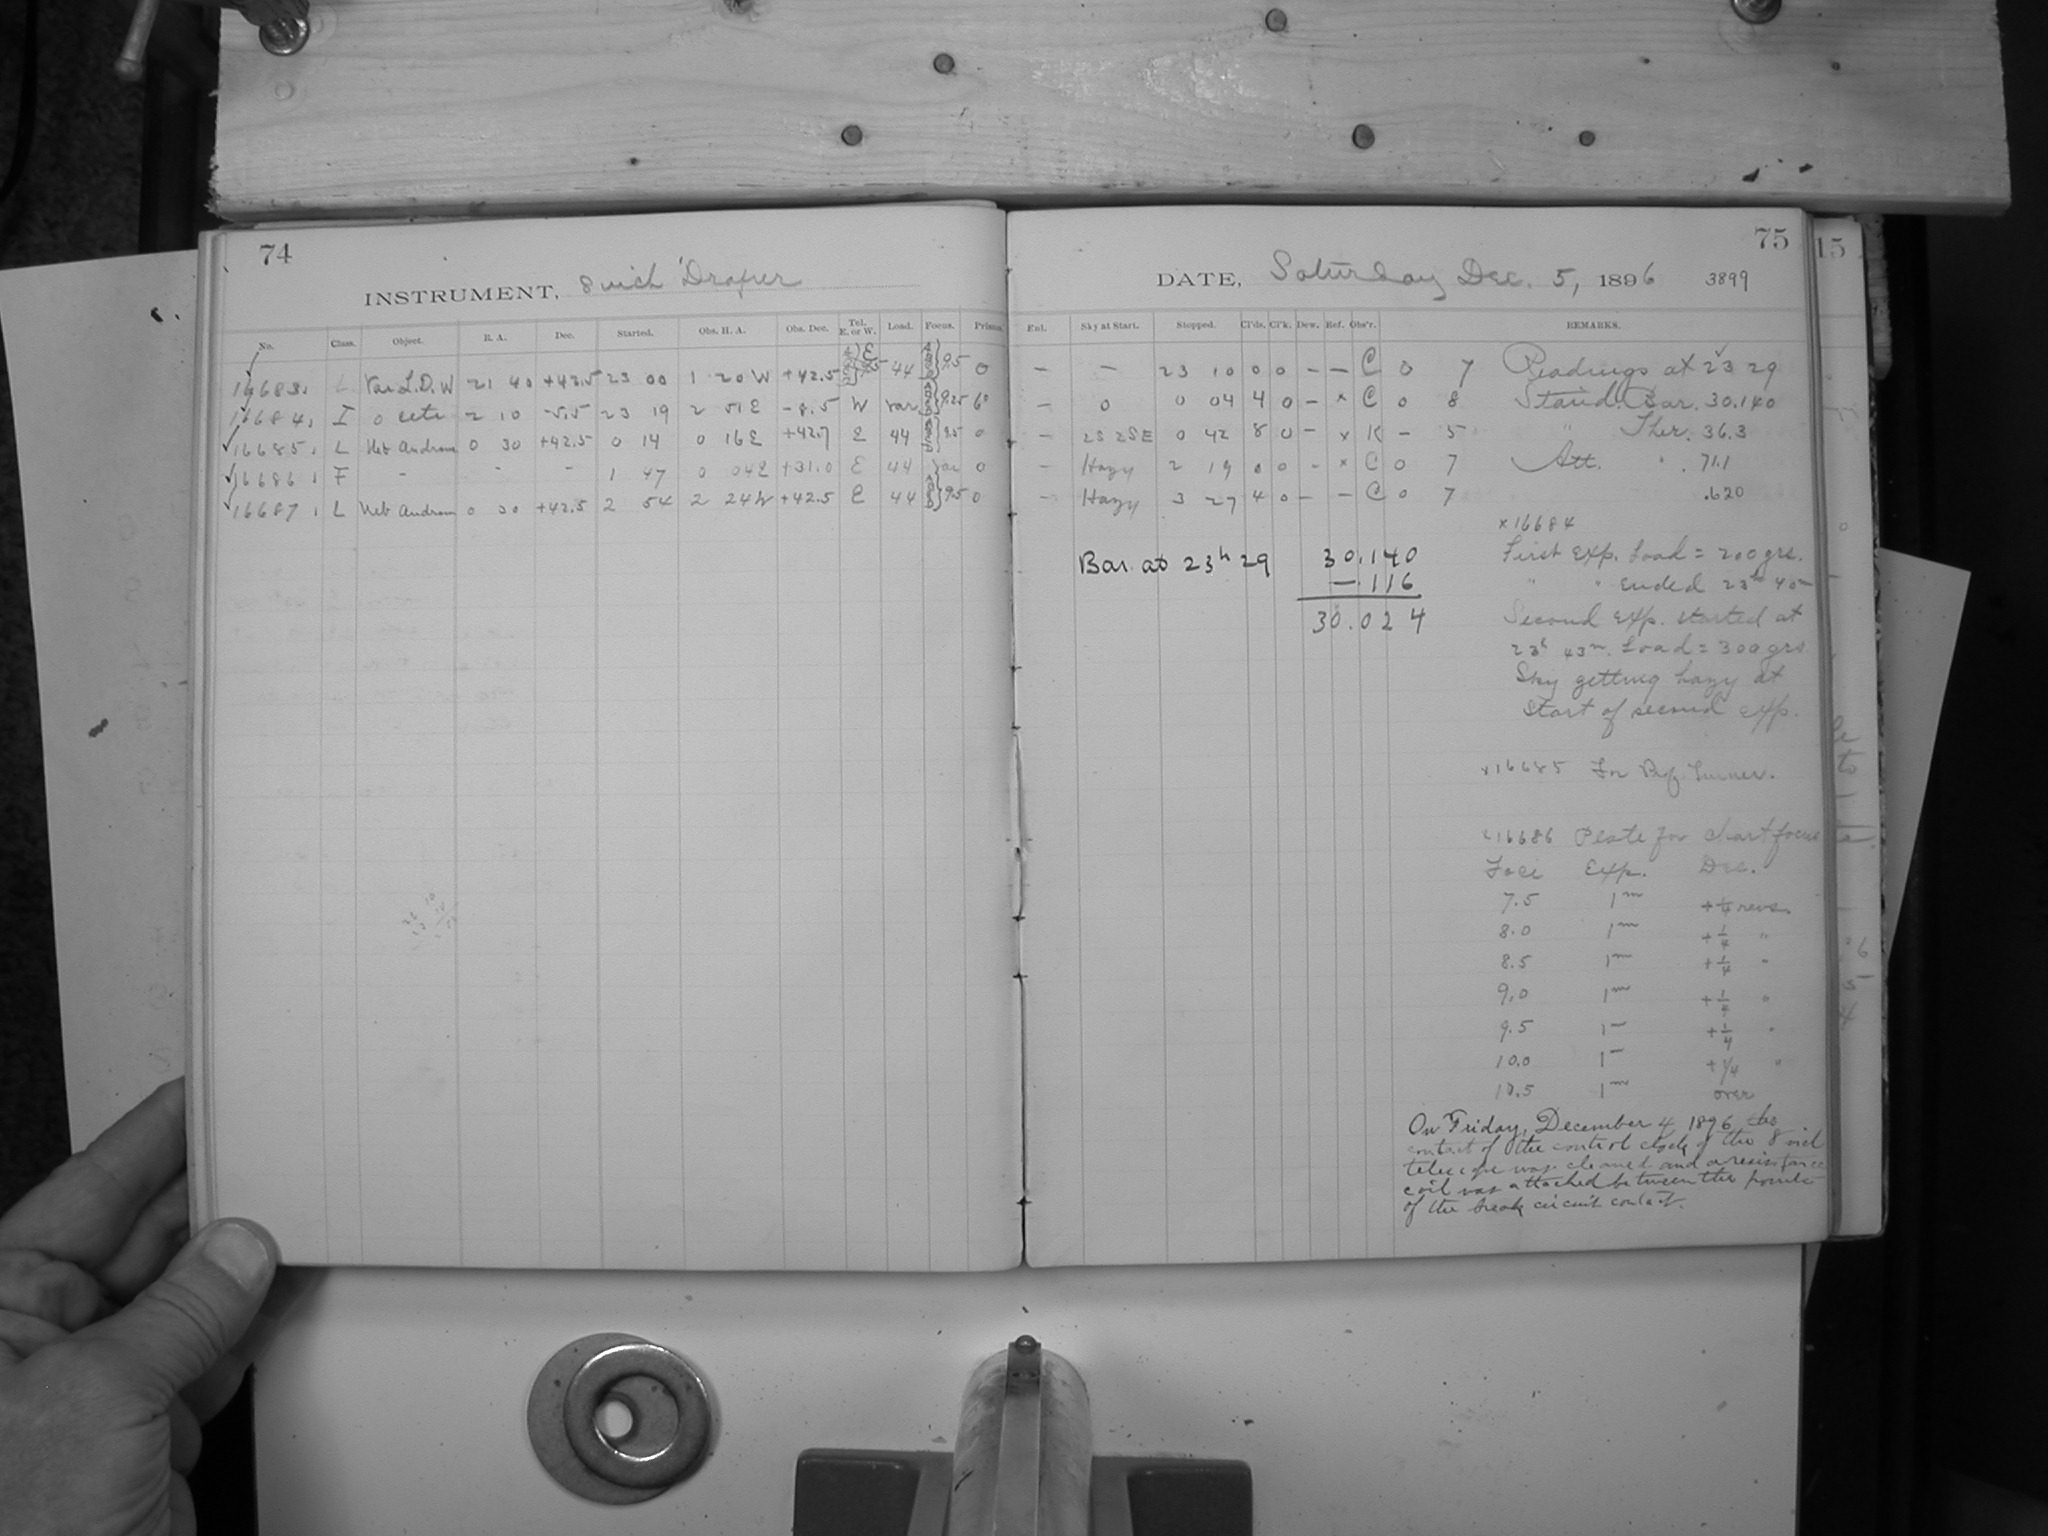 74
INSTRUMENT, 8 inch Draper
No. Class. Object. R. A. Dec. Started. Obs. H. A. Obs. Dec. Tel. E. or W. Load. Focus. Prisms.
16683, L Var L.D.W 21 40 +42.5 23 00 1 20 W +42.5 E 44 9.5 0
16684, I o Ceti 2 10 -5.5 23 19 2 51 E -8.5 W Var. 9.25 6°
16685, L Neb Androm 0 30 +42.5 0 14 0 16 E +42.7 E 44 9.5 0
16686, F - - - 1 47 0 04 E +31.0 E 44 Var 0
16687, L Neb Androm 0 30 +42.5 2 54 2 24 W +42.5 E 44 9.5 0
75
DATE, Saturday Dec. 5, 1896 3899
Enl. Sky at Start. Stopped. Cl'ds. Cl'k. Dew. Ref. Obs'r. REMARKS.
- - 23 10 0 0 - - C 0 7 Readings at 23 29
- 0 0 04 4 0 - x C 0 8 Stand. Bar. 30.140
- 2S 2SE 0 42 8 0 - x K - 5 " Ther. 36.3
- Hazy 2 19 0 0 - x C 0 7 Att. " 71.1
- Hazy 3 27 4 0 - - C 0 7 .620
Bar. at 23h 29 30.140
-.116
30.024
x16684
First Exp. Load = 200 grs.
" " Ended 23h 40
Second Exp. started at
23h 43m. Load = 300 grs
Sky getting hazy at
start of second exp.
x16685 For Prof Turner.
x16686 Plate for chart focus
Foci Exp. Dec.
7.5 1m +1/4 revs.
8.0 1m +1/4 "
8.5 1m +1/4 "
9.0 1m +1/4 "
9.5 1m +1/4 "
10.0 1m +1/4 "
10.5 1m over
On Friday, December 4 1896 the
contact of the control clock of the 8 inch
telescope was cleaned and a resistance
coil was attached between the points
of the break circuit contact.
15